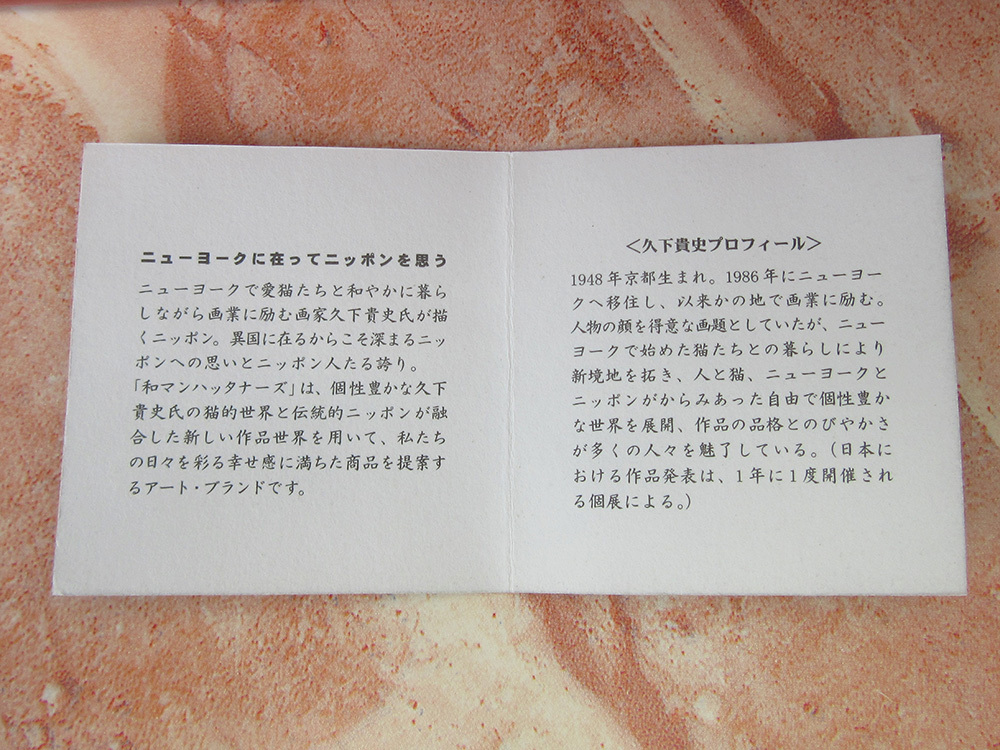 ニューヨークに在ってニッポンを思う
ニューヨークで愛猫たちと和やかに暮ら
しながら画業に励む画家久下貴史氏が描
くニッポン。異国に在るからこそ深まるニッ
ポンへの思いとニッポン人たる誇り。
「和マンハッタナーズ」は、個性豊かな久下
貴史氏の猫的世界と伝統的ニッポンが融
合した新しい作品世界を用いて、私たち
の日々を彩る幸せ感に満ちた商品を提案す
るアート・ブランドです。
＜久下貴史プロフィール＞
1948年京都生まれ。1986年にニューヨー
クへ移住し、以来かの地で画業に励む。
人物の顔を得意な画題としていたが、ニュー
ヨークで始めた猫たちとの暮らしにより
新境地を拓き、人と猫、ニューヨークと
ニッポンがからみあった自由で個性豊か
な世界を展開、作品の品格とのびやかさ
が多くの人々を魅了している。（日本に
おける作品発表は、1年に1度開催され
る個展による。）